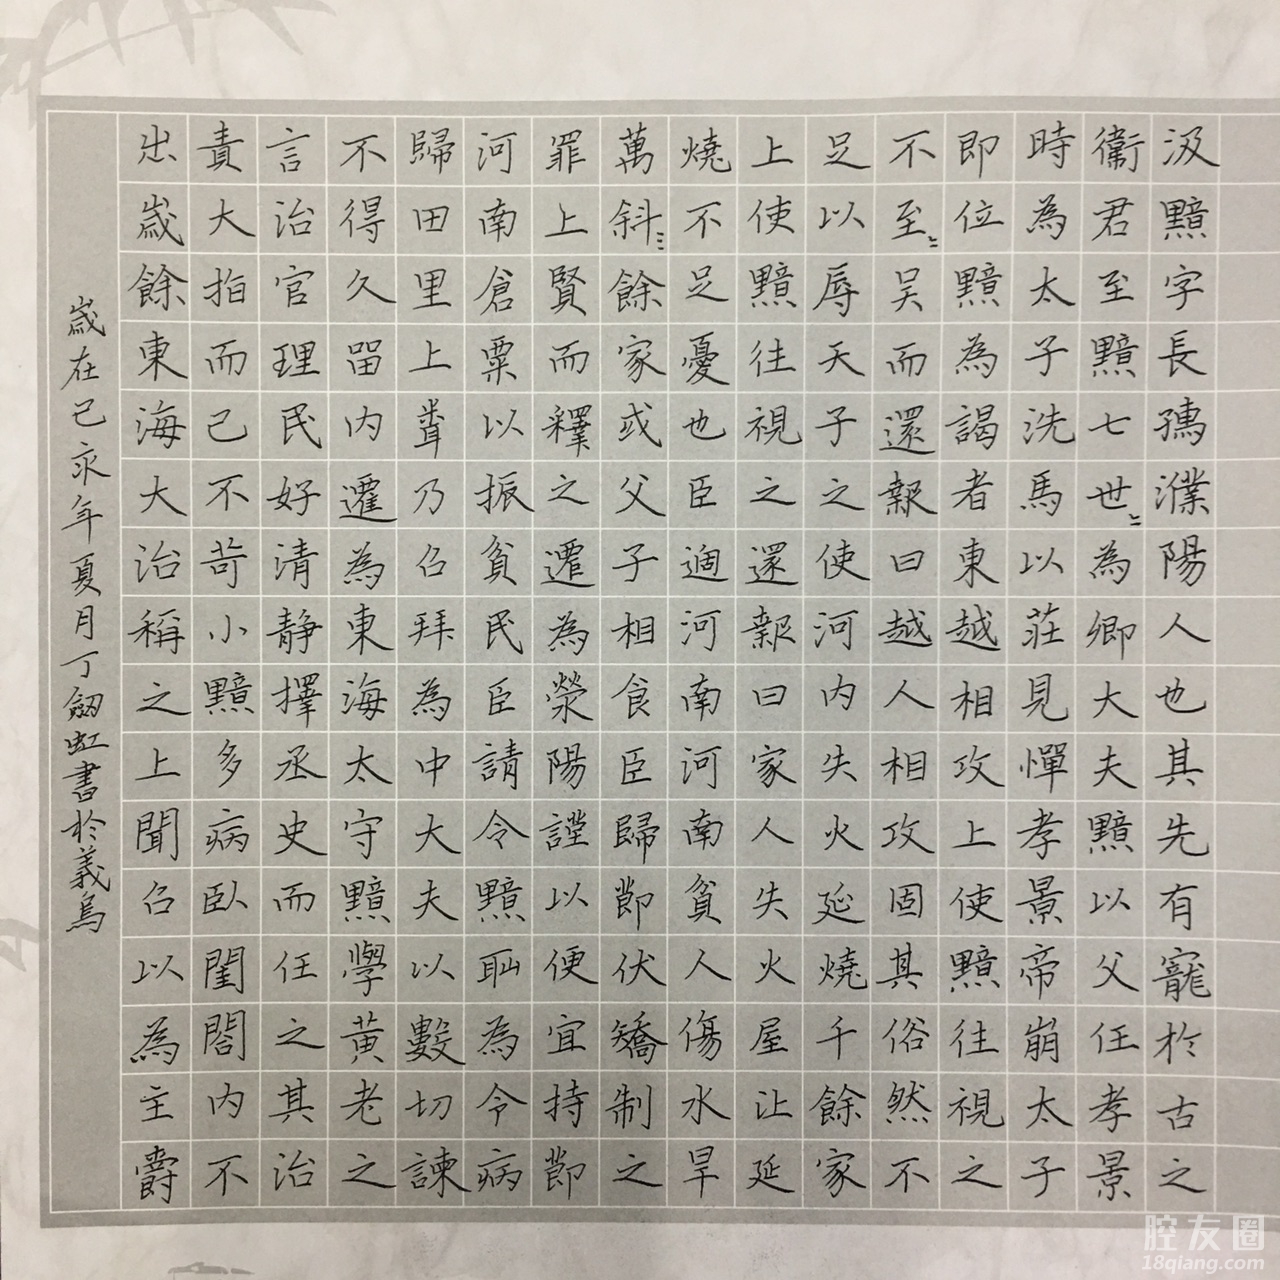 汲黯字長孺濮陽人也其先有寵於古之
衞君至黯七世〻為卿大夫黯以父任孝景
時為太子洗馬以莊見憚孝景帝崩太子
即位黯為謁者東越相攻上使黯往視之
不至〻吳而還報曰越人相攻固其俗然不
足以辱天子之使河内失火延燒千餘家
上使黯往視之還報曰家人失火屋比延
燒不足憂也臣過河南河南貧人傷水旱
萬斜餘家或父子相食臣歸節伏矯制之
罪上賢而釋之遷為滎陽謹以便宜持節
河南倉粟以振貧民臣請令黯恥為令病
歸田里上聞乃召拜為中大夫以數切諫
不得久留内遷為東海太守黯學黃老之
言治官理民好清静擇丞史而任之其治
責大指而已不苛小黯多病臥閨閤内不
出歲餘東海大治稱之上聞召以為主爵
歲在己亥年夏月丁劒虹書於義烏
腔友圈
18qiang.com